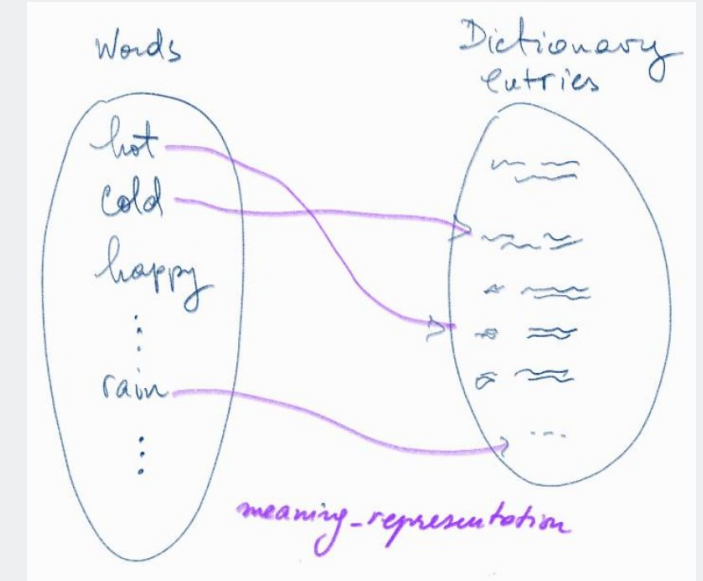 Words
Dictionary
entries
hot
cold
happy
rain
...
meaning-representation